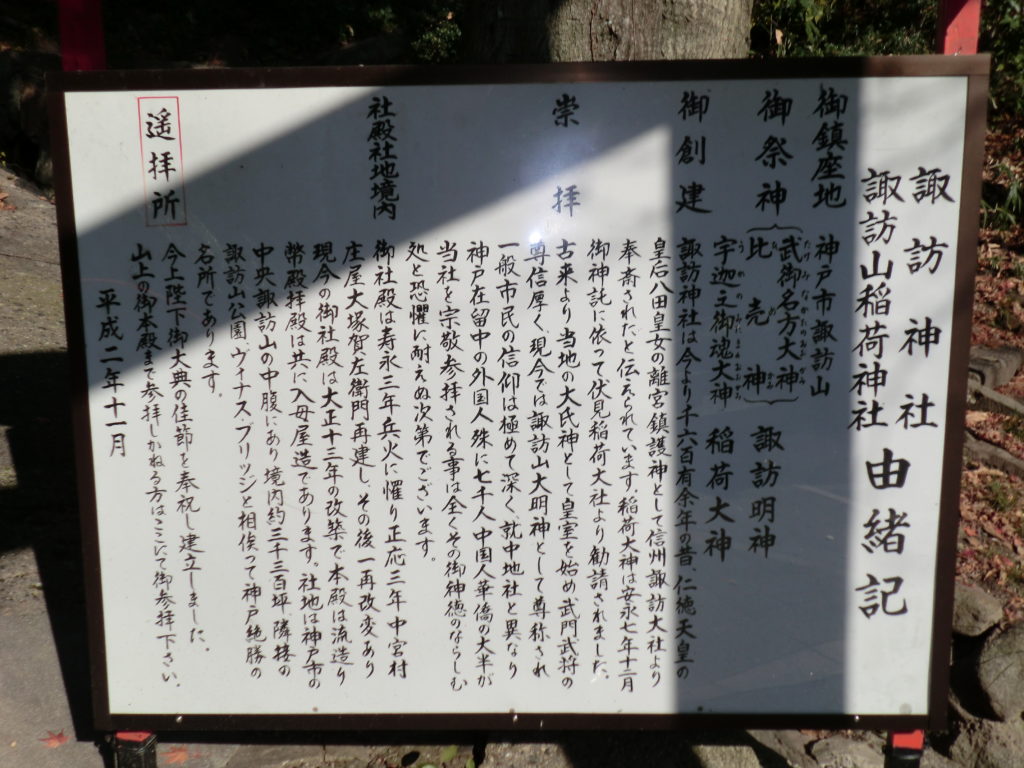 諏訪神社
諏訪山稲荷神社
由緒記
御鎮座地
神戸市諏訪山
御祭神
武御名方大神
たけみなかたのおおがみ
比売神
ひめがみ
諏訪明神
宇迦之御魂大神
うかのみたまおおかみ
稲荷大神
御創建
諏訪神社は今より千六百有余年の昔、仁徳天皇の
皇后八田皇女の離宮鎮護神として信州諏訪大社より
奉斎されたと伝えられています。稲荷大神は安永七年十二月
御神託に依って伏見稲荷大社より勧請されました。
崇拝
古来より当地の大氏神として皇室を始め、武門武将の
尊信厚く、現今では諏訪山大明神として尊称され
一般市民の信仰は極めて深く、就中地社と異なり
神戸在留中の外国人殊に七千人中国人華僑の大半が
当社を宗敬参拝される事は全くその御神徳のならしむ
処と恐懼に耐えぬ次第でございます。
社殿社地境内
御社殿は寿永三年兵火に懼り正応三年中宮村
庄屋大塚賀左衛門再建し、その後一再改変あり
現今の御社殿は大正十三年の改築で本殿は流造り
幣殿拝殿は共に入母屋造であります。社地は神戸市の
中央諏訪山の中腹にあり境内約三千三百坪、隣接の
諏訪山公園、ヴィナスブリッジと相俟って神戸絶勝の
名所であります。
遥拝所
今上陛下御大典の佳節を奉祝し建立しました、
山上の御本殿まで参拝しかねる方はここにて御参拝下さい。
平成二年十一月